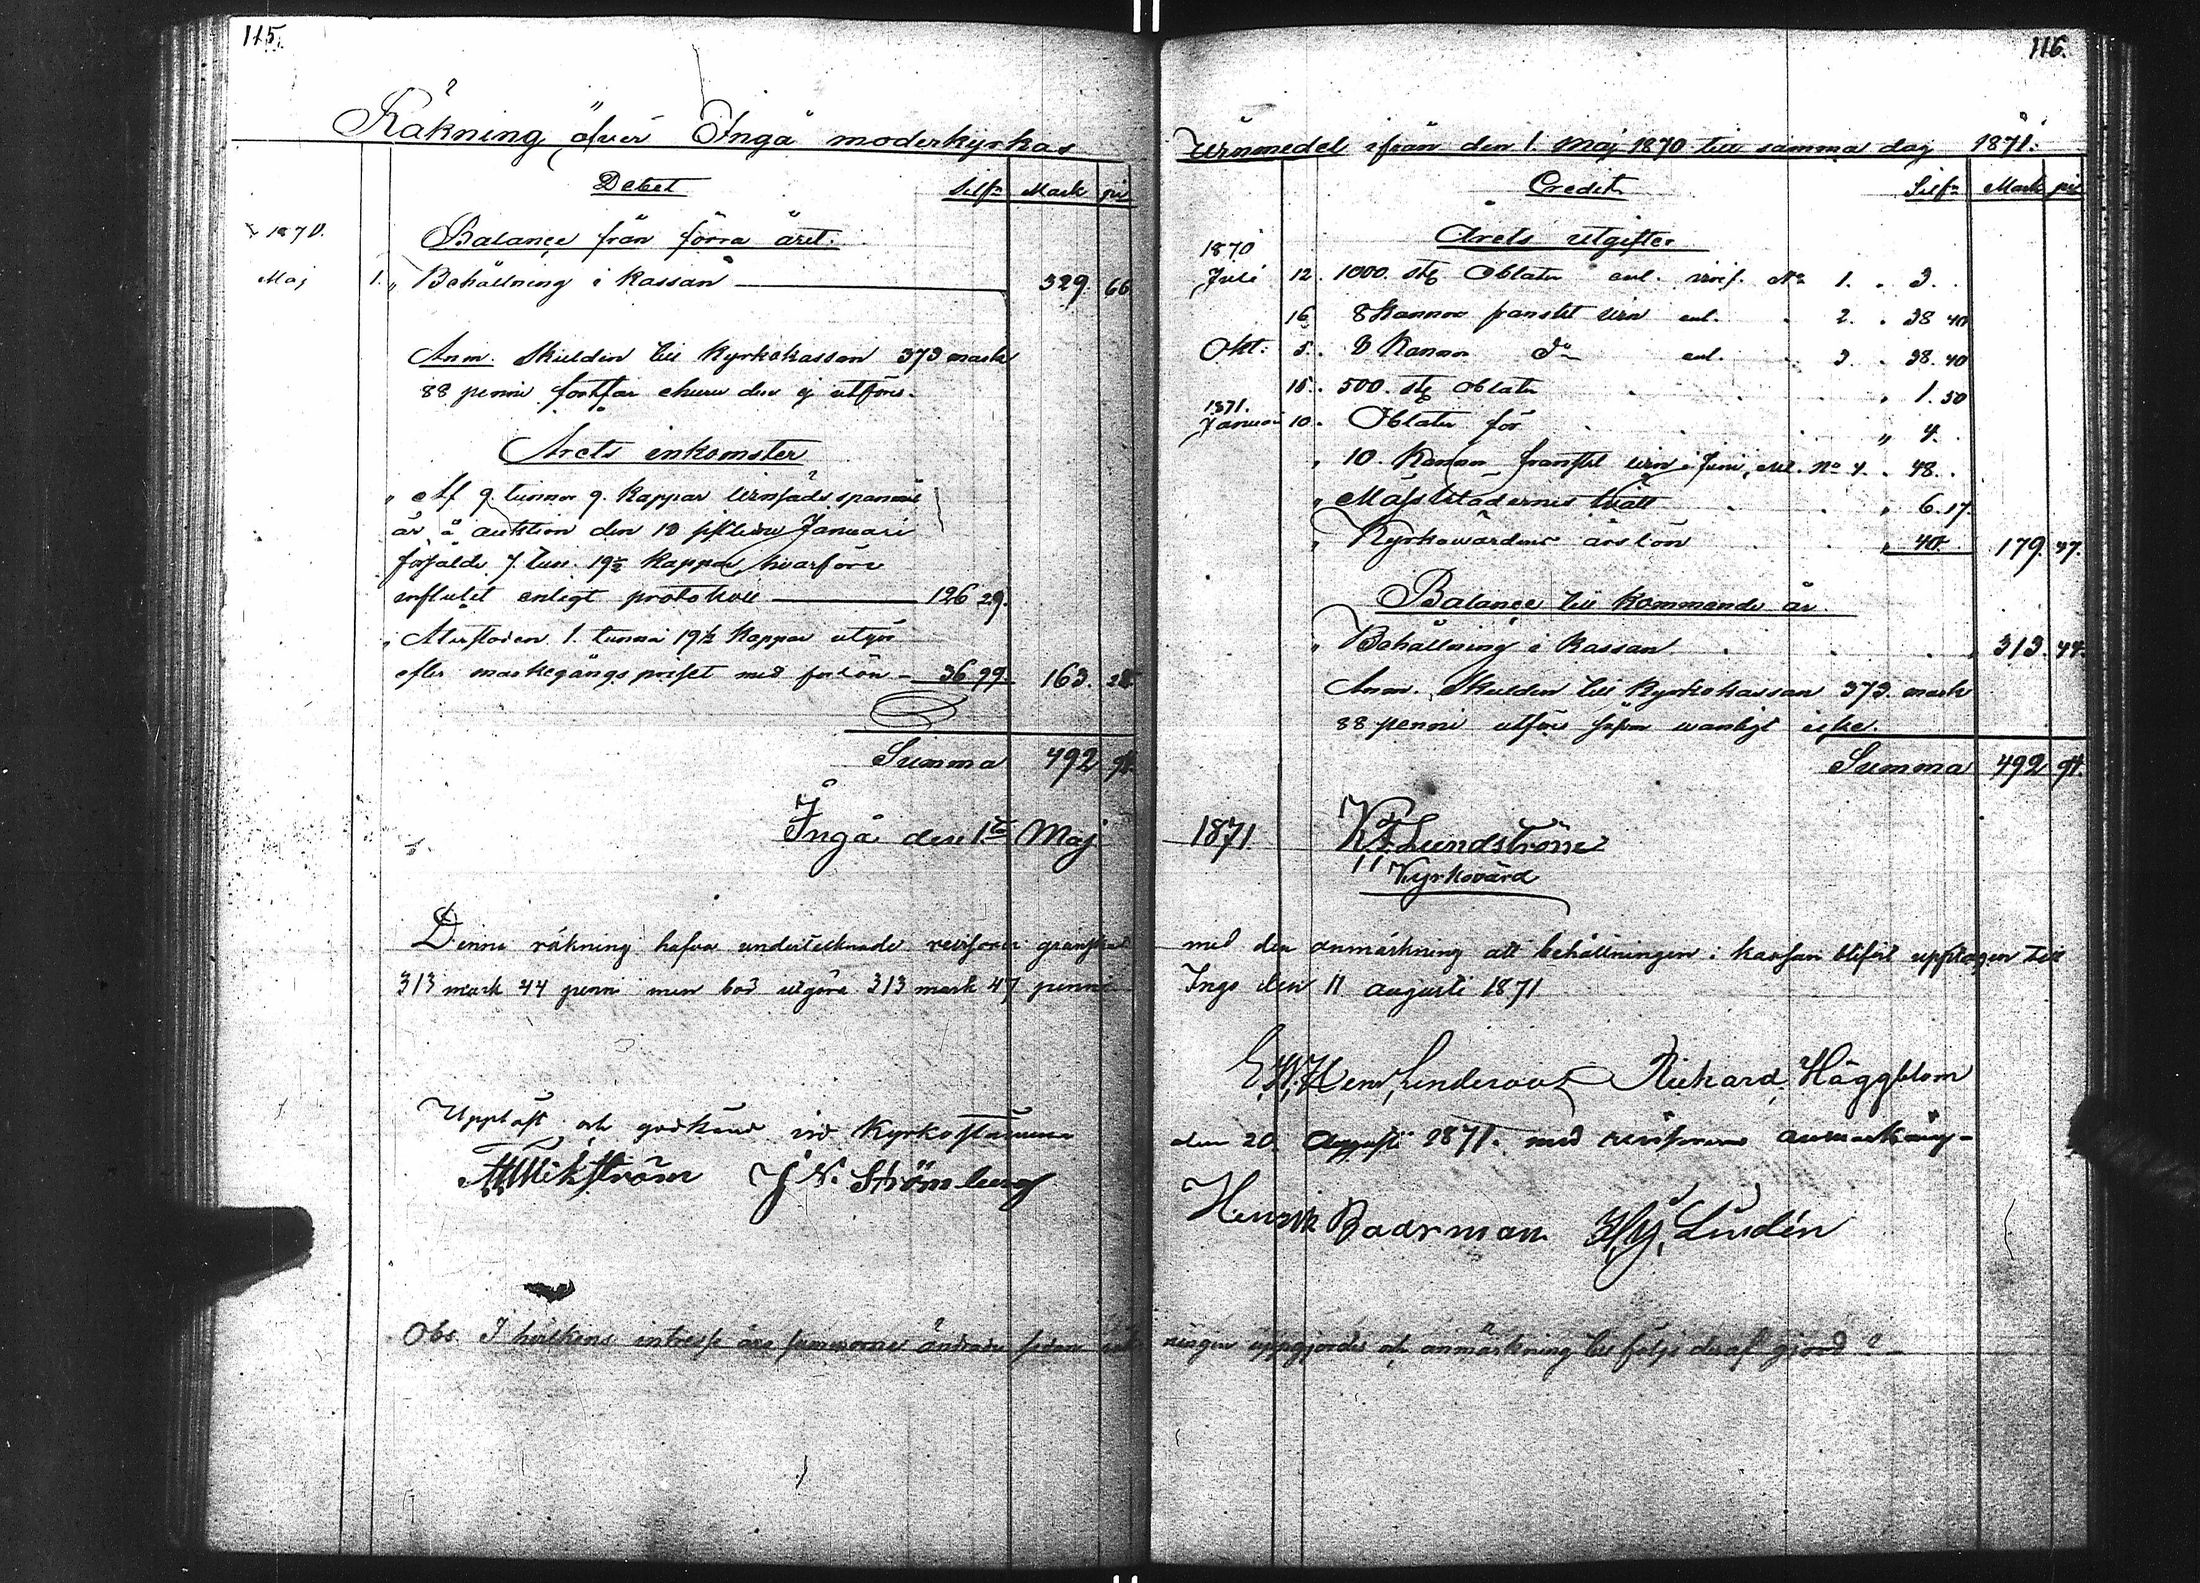 115.
Räkning öfver Ingå moderkyrkas
Debet Silfr Mark pi
1870. Balance från förra året.
Maj 1. " Behållning i kassan 329 66
Anm. Skulden till Kyrkokassan 373 mark
88 penni fortfar ehuru den ej utföres.
Årets inkomster
" Af 9. tunnor 9. kappar vinsäds spanmål
är å auktion den 10 sistlidne Januari
försålde 7. tun. 19½ kappar hvarföre
influtit enligt protokoll 126 29.
" Återstoden 1. tunna 19½ kappar utgör
efter markegångspriset med forlön 36 99 163. 28
Summa 492 94.
Ingå den 1ta Maj
Denna räkning hafva undertecknade revisorer granskat
313 mark 44 penni men bör utgöra 313 mark 47 penni
Uppläst och godkänd vid Kyrkostämma
Wikström J N. Strömberg
Obs. I hvilkens intresse äro summorna ändrade sedan räk
116.
Vinmedel ifrån den 1. Maj 1870 till samma dag 1871.
Credit Silfr Mark pi
1870 Årets utgifter
Juli 12. 1000. stg Oblater enl. verif. No 1. " 3.
16. 8 Kannor franskt vin enl. " 2. " 38 40
Okt. 5. 8 Kannor do enl. " 3. " 38. 40
15. 500. stg Oblater " 1. 50
1871.
Januari 10. Oblater för " 4.
" 10. Kannor franskt vin i Juni, enl. No 4. " 48.
" Mässklädernes tvätt " 6. 17.
" Kyrkovärdens årslön " 40. 179. 47.
Balance till kommande år
" Behållning i kassan 313. 44.
Anm. Skulden till Kyrkokassan 373. mark
88 penni utföres såsom vanligt icke.
Summa 492 94.
1871. K F Lundström
Kyrkovärd
med den anmärkning att behållningen i kassan blifvit upptagen till
Ingo den 11 augusti 1871
Richard Häggblom
den 20. Augusti 1871. med revisorernes anmärkning
Henrik Baarman Lindén
ningen uppgjordes och anmärkning till följe deraf gjord?